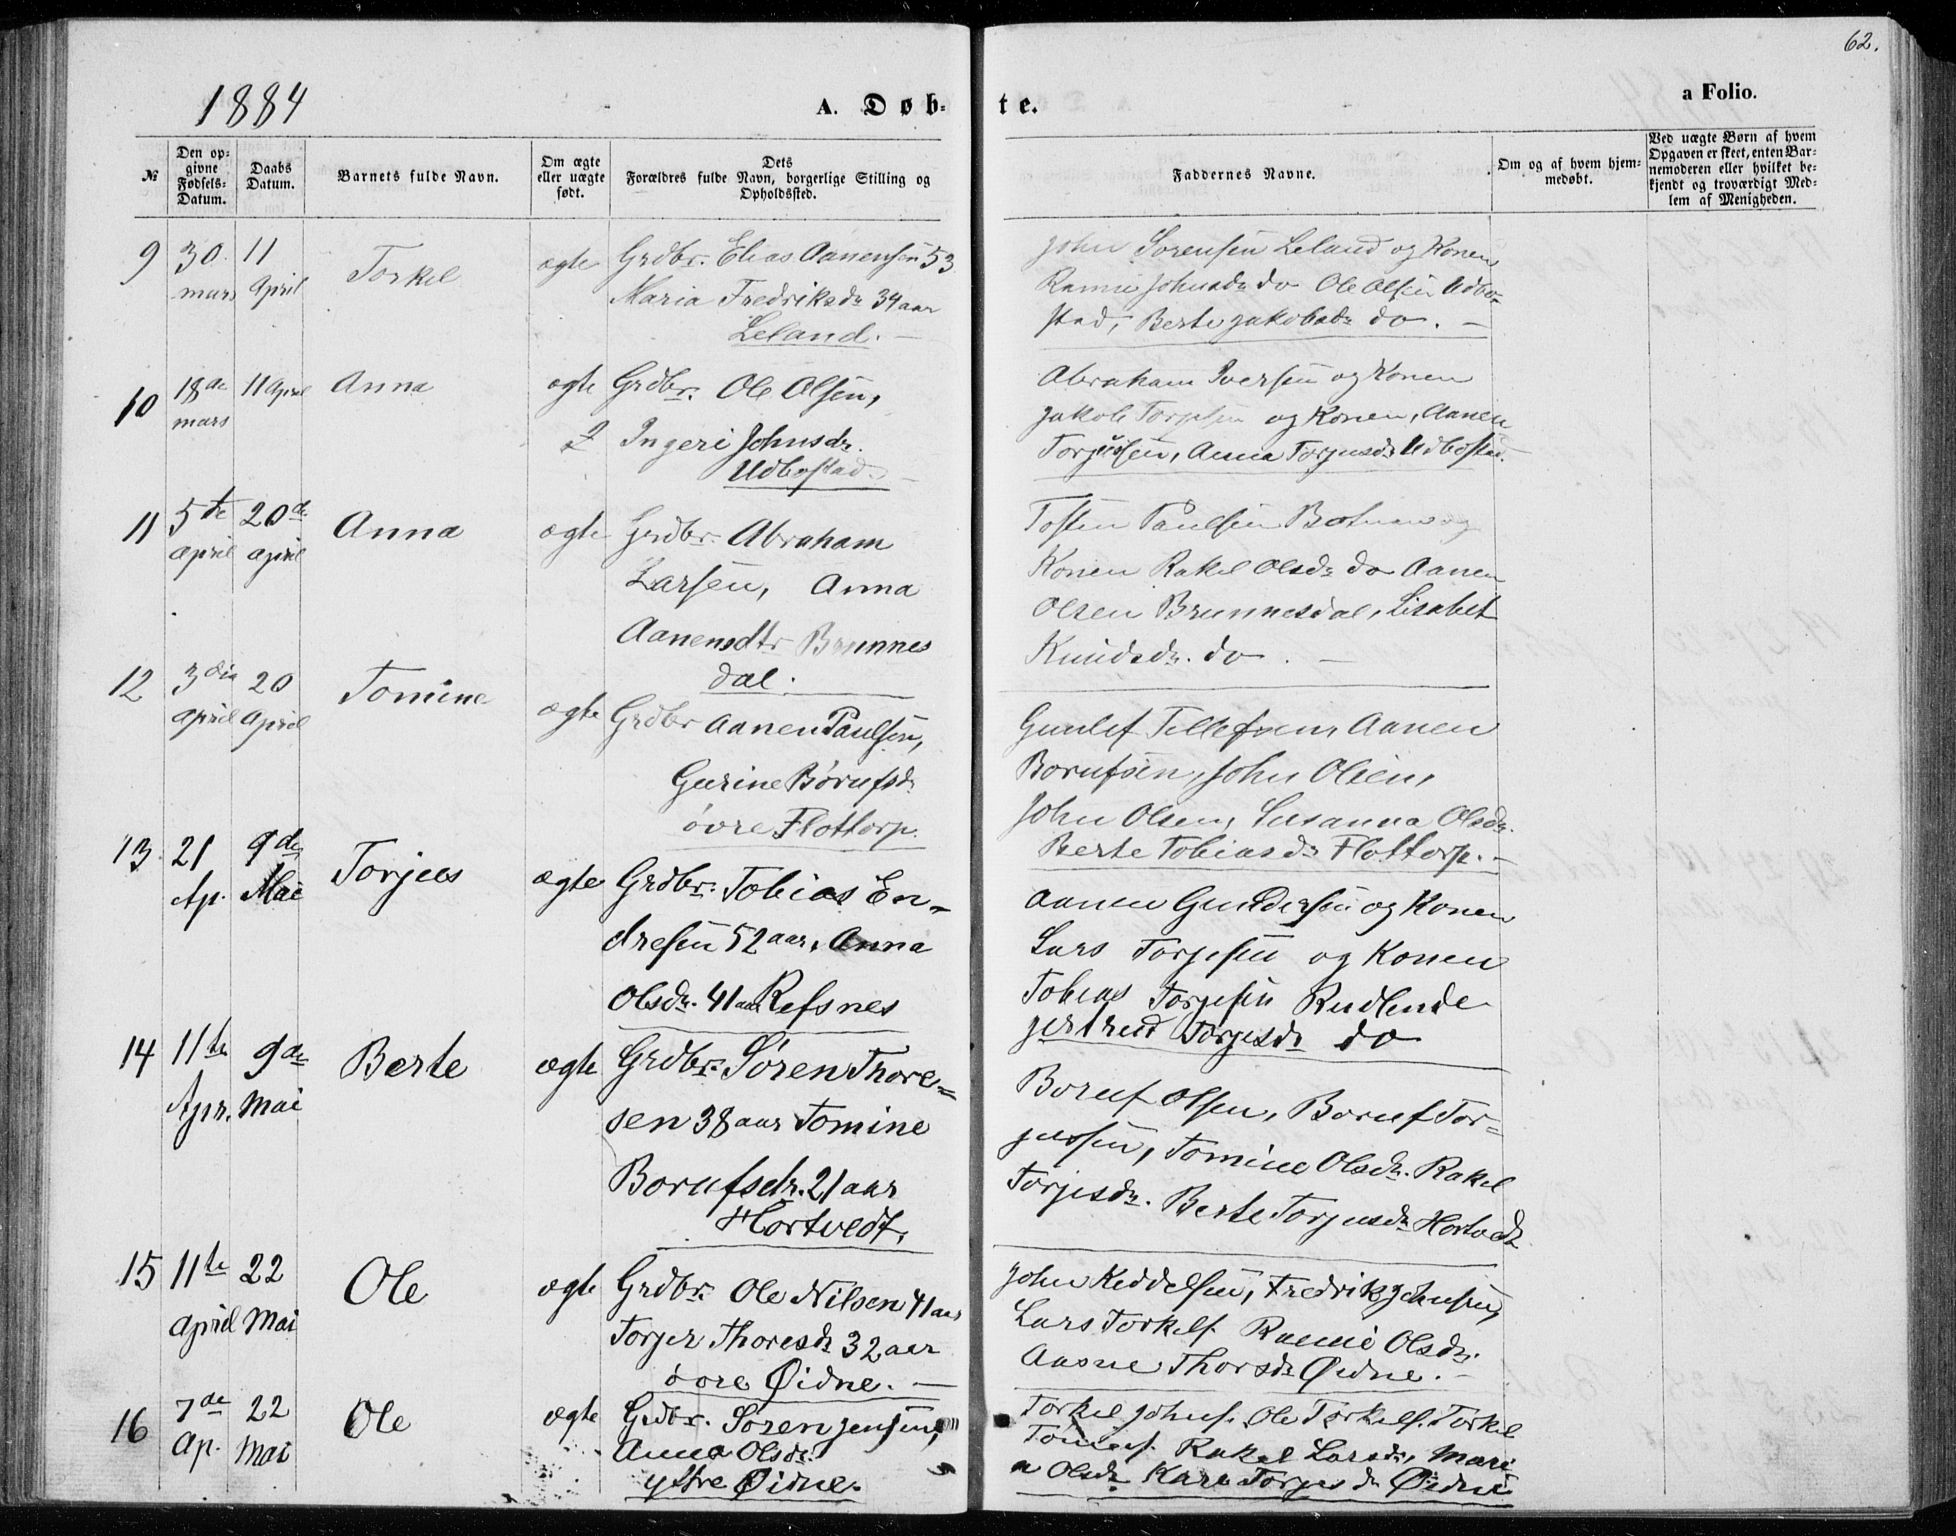 62.
1884
A. Døb-
te.
a Folio.
№
Den op-
givne
Fødsels-
Datum.
Daabs
Datum.
Barnets fulde Navn.
Om ægte
eller uægte
født.
Dets
Forældres fulde Navn, borgerlige Stilling og
Opholdssted.
Faddernes Navne.
Om og af hvem hjem-
medøbt.
Ved uægte Børn af hvem
Opgaven er skeet, enten Bar-
nemoderen eller hvilket be-
kjendt og troværdigt Med-
lem af Menigheden.
9
30.
mars
11
April
Torkel
ægte
Grdbr. Elias Aanensen 53
Maria Fredriksdr 34 aar
Leland.
John Sorensen Leland og Konen
Ranni Johnsdr do Ole Olsen Udbo-
stad, Berte Jakobsdr do. —
10
18de
mars
11 April
Anna
ægte
Grdbr. Ole Olsen,
Ingeri Johnsdr.
Udbostad.
Abraham Iversen og Konen
Jakob Torjusen og Konen, Aanen
Torjusen, Anna Torjusdr Udbostad.
11
5te
april
20de
april
Anna
ægte
Grdbr. Abraham
Larsen, Anna
Aanensdtr Brunnes
dal.
Tosten Paulsen og
Konen Rakel Olsdr do Aanen
Olsen Brunnesdal, Lisabet
Knudsdr. do. —
12
3die
april
20
April
Tomine
ægte
Grdbr Aanen Paulsen,
Gurine Børufsdr
øvre Flottorp.
Gunlef Tellefsen, Aanen
Borufsen, John Olsen,
John Olsen, Susanna Olsdr.
Berte Tobiasdr Flottorp. —
13
21
Ap.
9de
Mai
Torjus
ægte
Grdbr. Tobias En-
dresen 52 aar, Anna
Olsdr. 41 aar Refsnes
Aanen Gundersen og Konen
Lars Torjesen og Konen
Tobias Torjesen
Torjesdr do
14
11te
Apr.
9de
Mai
Berte
ægte
Grdbr. Søren Thore-
sen 38 aar Tomine
Borufsdr. 21 aar
Hortvedt.
Boruf Olsen, Boruf Tor-
jussen, Tomine Olsdr. Rakel
Torjesdr. Berte Torjusdr Hortvedt
15
11te
april
22
Mai
Ole
ægte
Grdbr. Ole Nilsen 41 aar
Torjer Thoresdr 32 aar
øvre Øidne. —
John Keddelsen, Fredrik Johnsen,
Lars Torkels. Ranni Olsdr.
Aasne Thorsdr Øidne. —
16
7de
Ap.
22
Mai
Ole
ægte
Grdbr. Søren Jensen,
Anna Olsdr.
ytre Øidne.
Torkel Johns. Ole Torkels. Torkel
Tomas. Rakel Larsdr, Mari
a Olsdr Kari Torjesdr Øidne